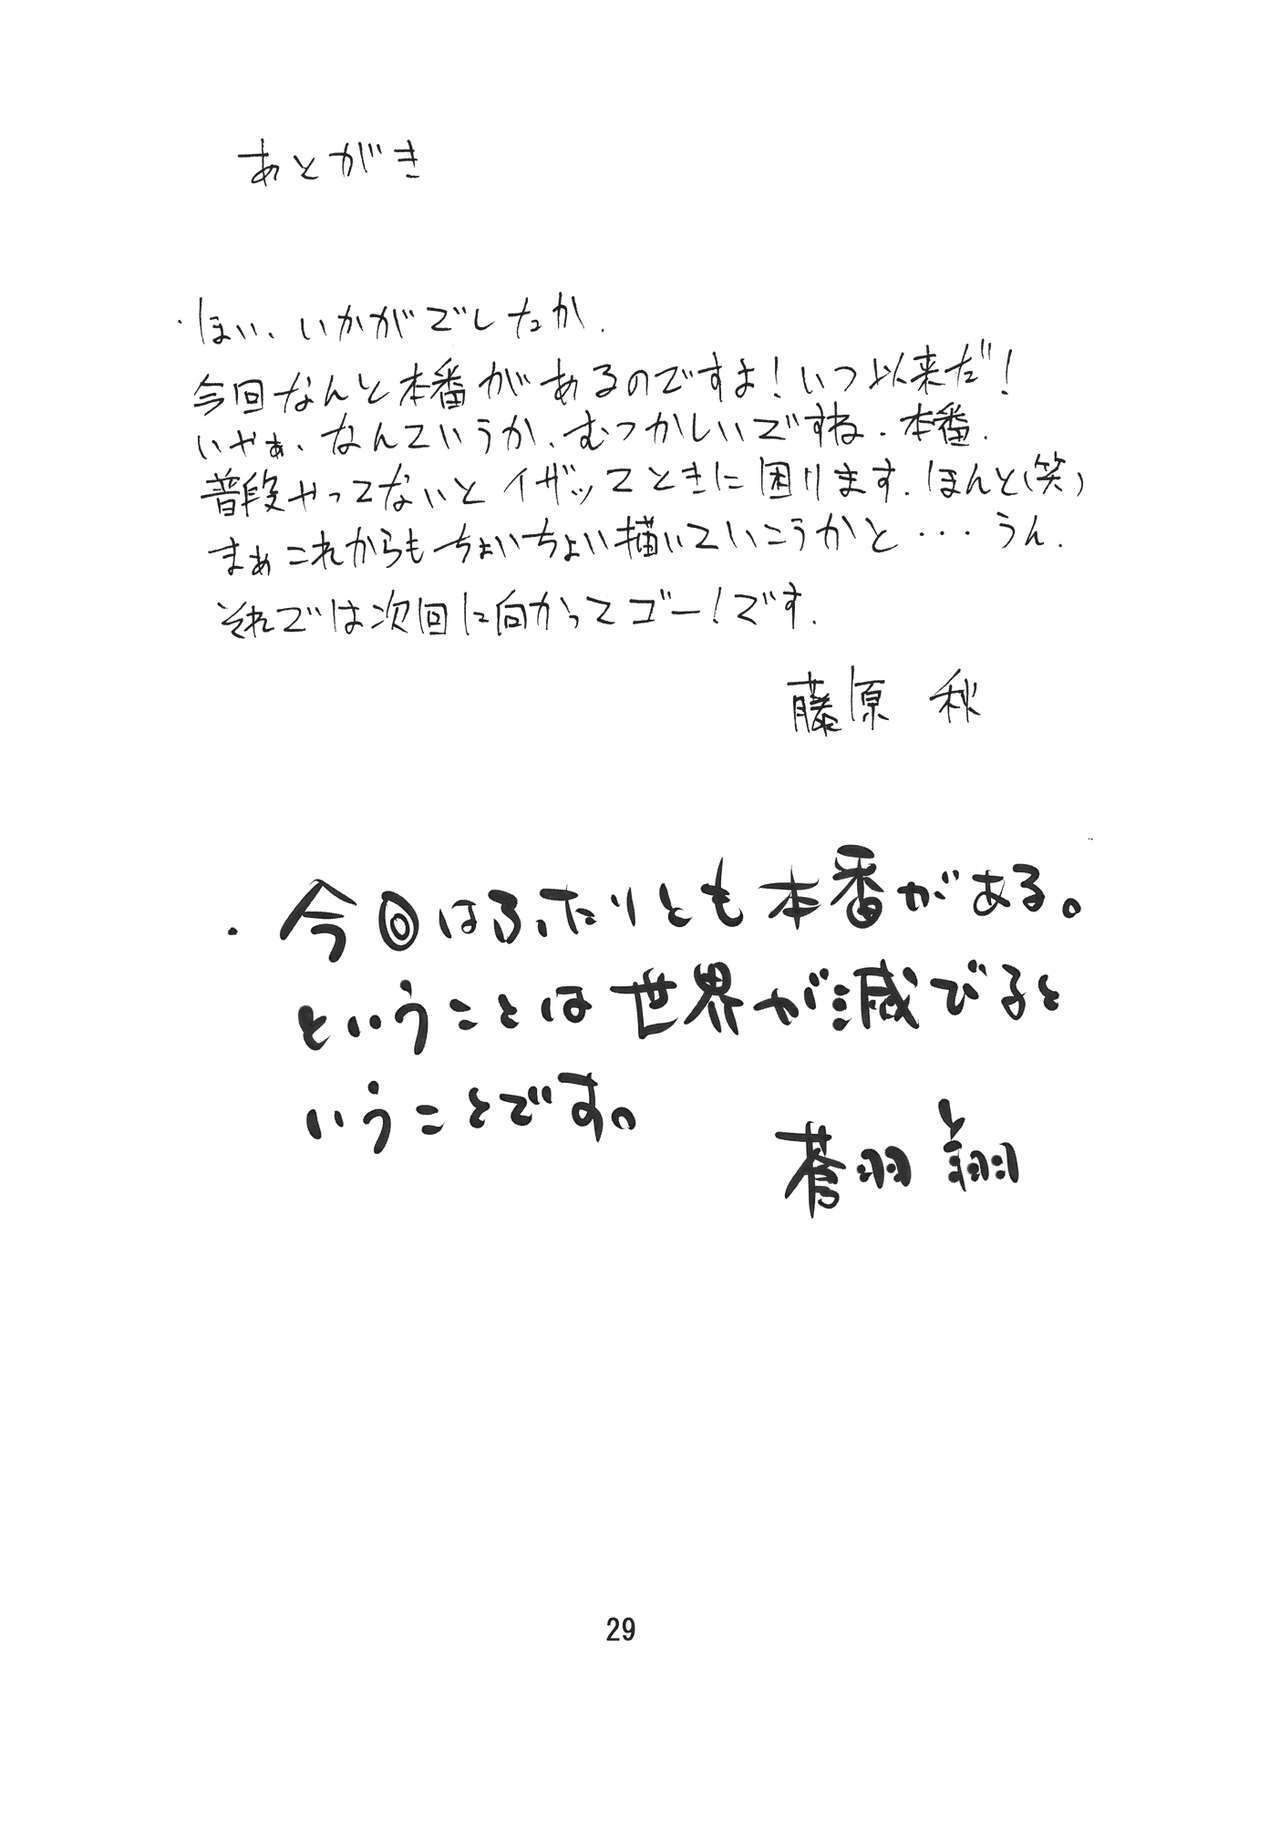 あとがき
・ほい、いかがでしたか.
今回なんと本番があるのですよ!いつ以来だ!
いやぁ、なんていうか、むつかしいですね.本番.
普段やってないとイザッてときに困ります.ほんと(笑)
まぁこれからもちょいちょい描いていこうかと・・・うん.
それでは次回に向かってゴー!です.
藤原 秋
・今回はふたりとも本番がある。
ということは世界が滅びると
いうことです。
蒼羽 翔
29